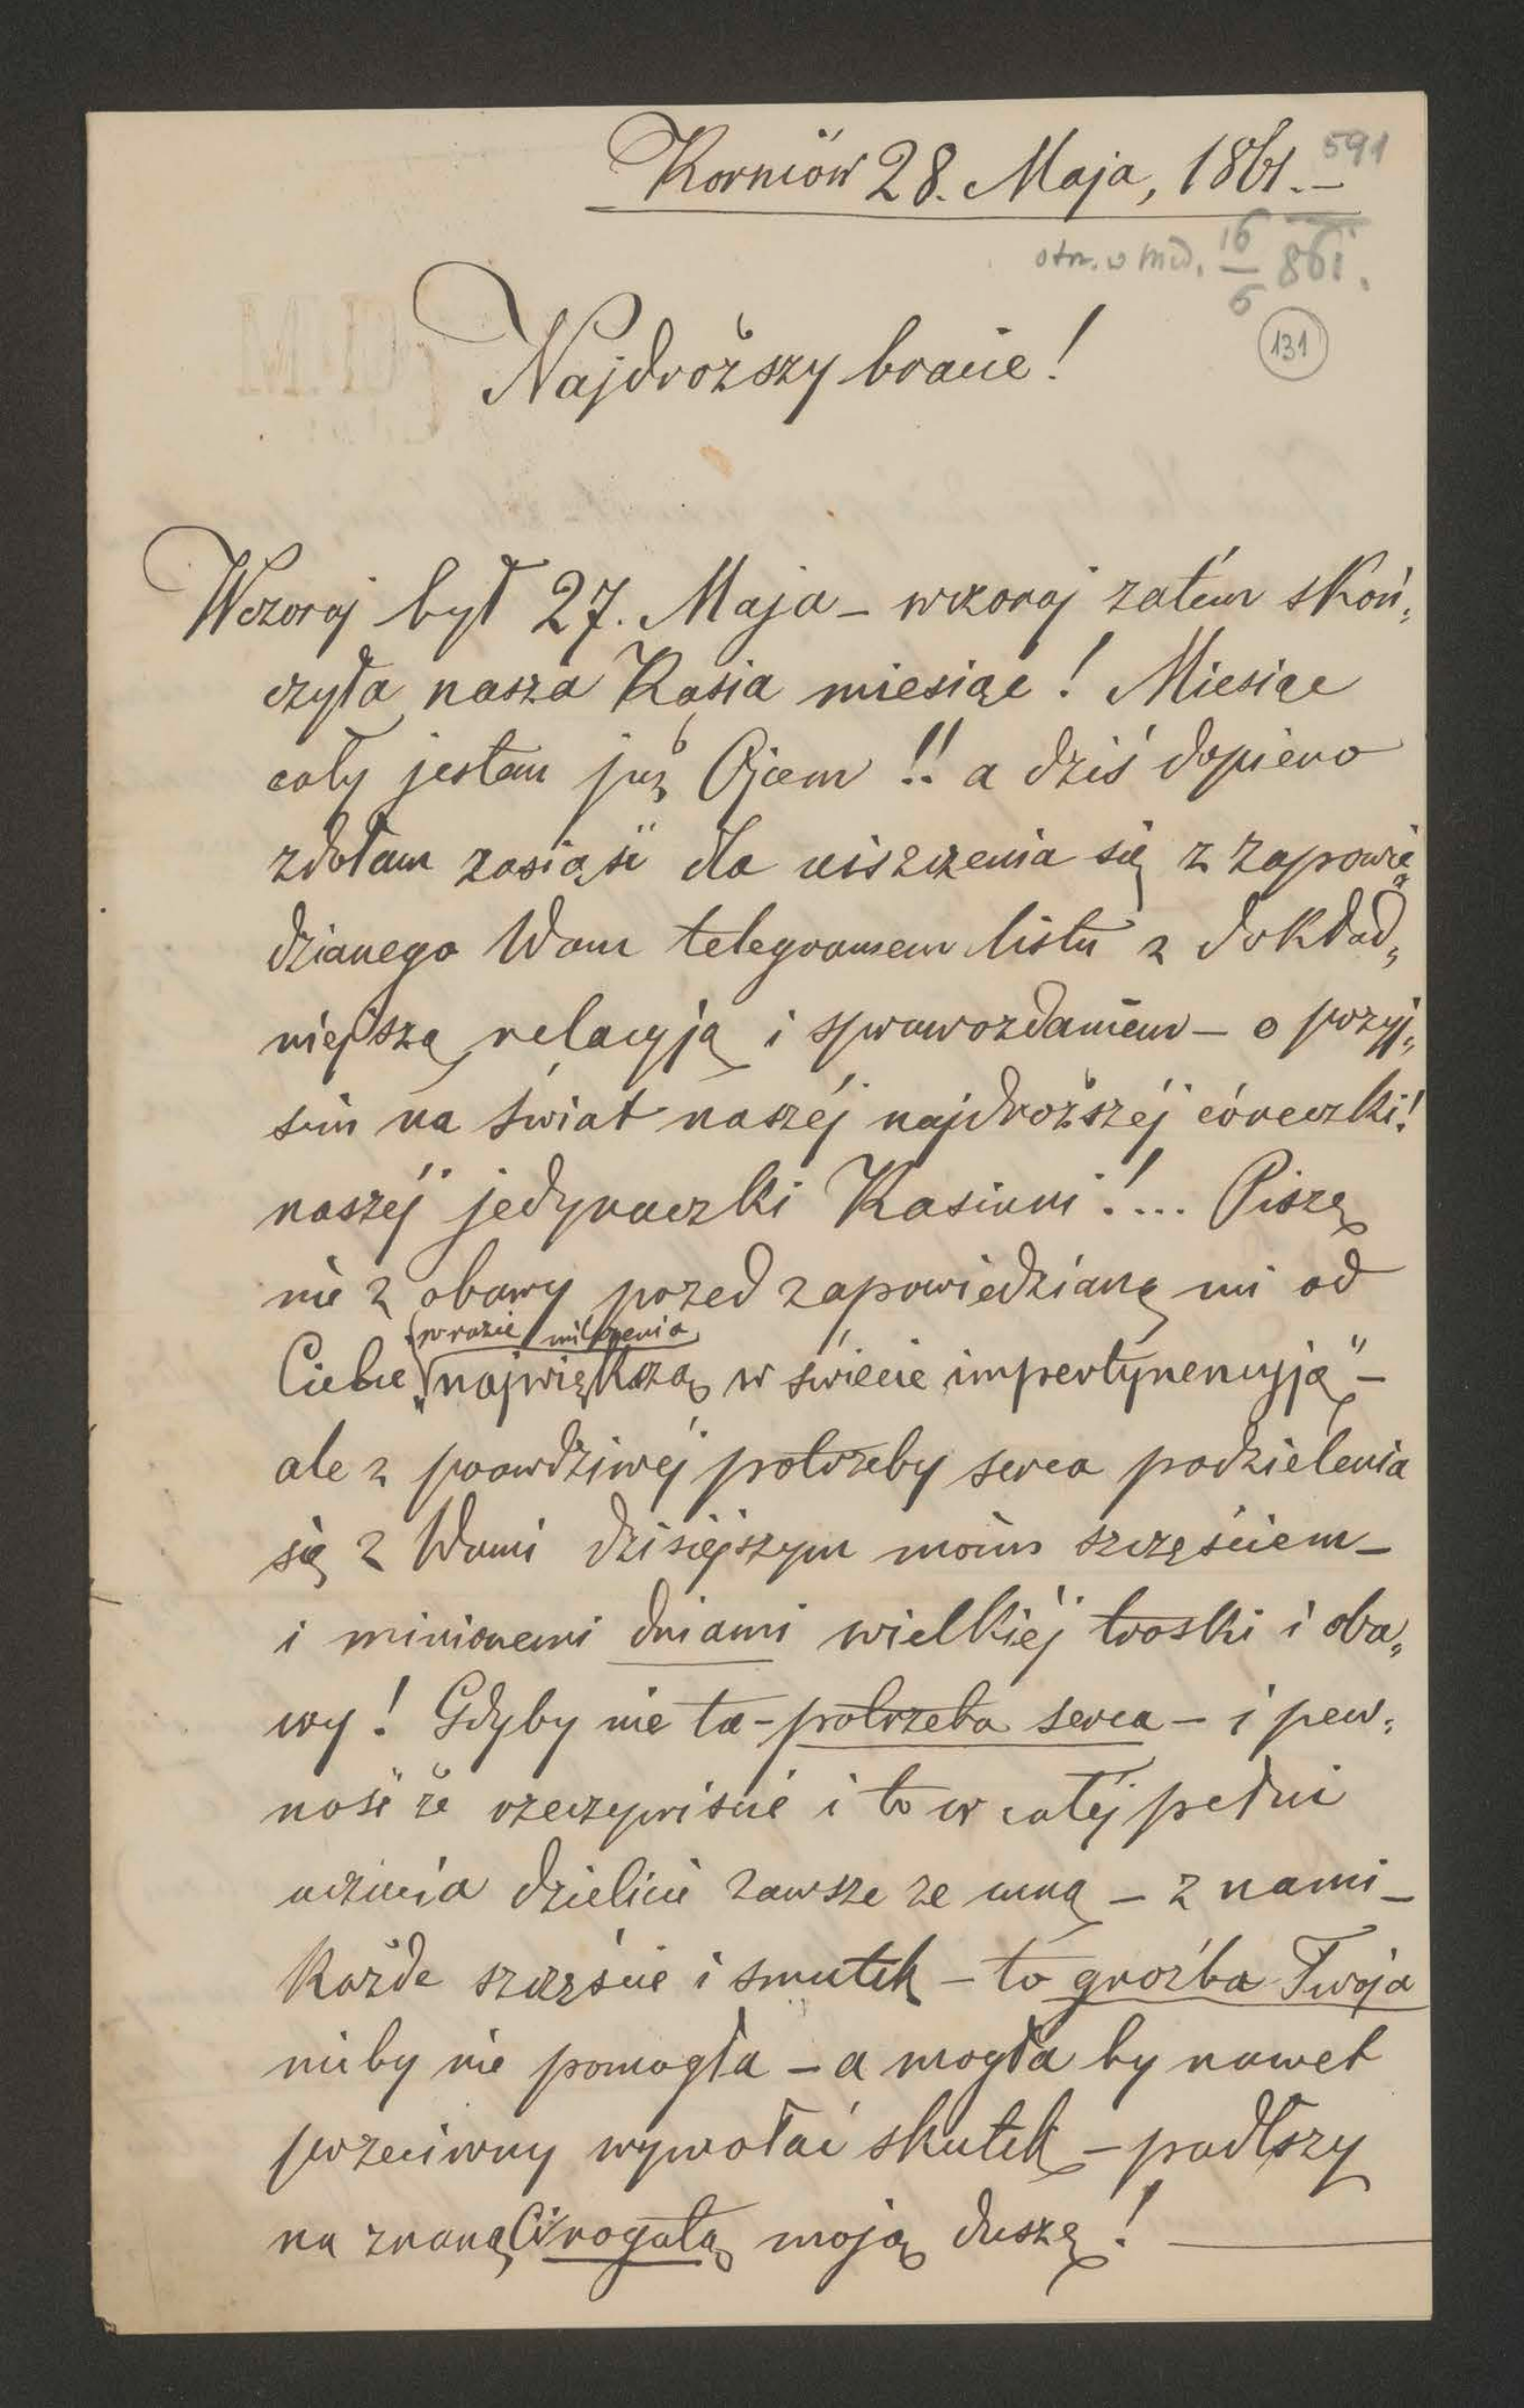 Korniów 28. Maja, 1861.–
591
otrz. w Md. 16/6 861.
131
Najdroższy bracie!
Wczoraj był 27. Maja – wczoraj zatém skoń„
czyła nasza Kasia miesiąc! Miesiąc
cały jestem już Ojcem!! a dziś dopiero
zdołam zasiąść dla uiszczenia się z zapowie„
dzianego Wam telegramem listu z dokład„
niejszą relacyją i sprawozdaniem – o przyj„
ściu na świat naszéj najdroższéj córeczki!
naszéj jedynaczki Kasiuni!... Piszę
nie z obawy przed zapowiedzianą mi od
(w razie milczenia)
Ciebie „największą w świecie impertynencyją” –
ale z prawdziwéj potrzeby serca podzielenia
się z Wami dzisiejszym moim szczęściem –
i minionemi dniami wielkiéj troski i oba„
wy! Gdyby nie ta – potrzeba serca – i pew„
ność że rzeczywiście i to w całéj pełni
uczucia dzielicie zawsze ze mną – z nami –
każde szczęście i smutek – to groźba Twoja
nicby nie pomogła – a mogła by nawet
przeciwny wywołać skutek – padłszy
na znaną Ci rogatą moją duszę! –